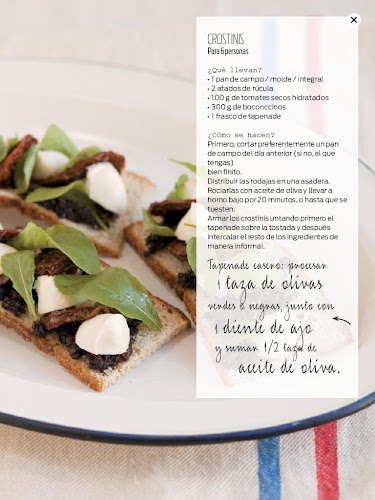 CROSTINIS
Para 6 personas
¿Qué llevan?
• 1 pan de campo / molde / integral
• 2 atados de rúcula
• 100 g de tomates secos hidratados
• 300 g de boconccinos
• 1 frasco de tapenade
¿Cómo se hacen?
Primero, cortar preferentemente un pan
de campo del día anterior (si no, el que
tengas)
bien finito.
Distribuir las rodajas en una asadera.
Rociarlas con aceite de oliva y llevar a
horno bajo por 20 minutos, o hasta que se
tuesten.
Armar los crostinis untando primero el
tapenade sobre la tostada y después
intercalar el resto de los ingredientes de
manera informal.
Tapenade casero: procesan
1 taza de olivas
verdes o negras, junto con
1 diente de ajo
y suman 1/2 taza de
aceite de oliva.